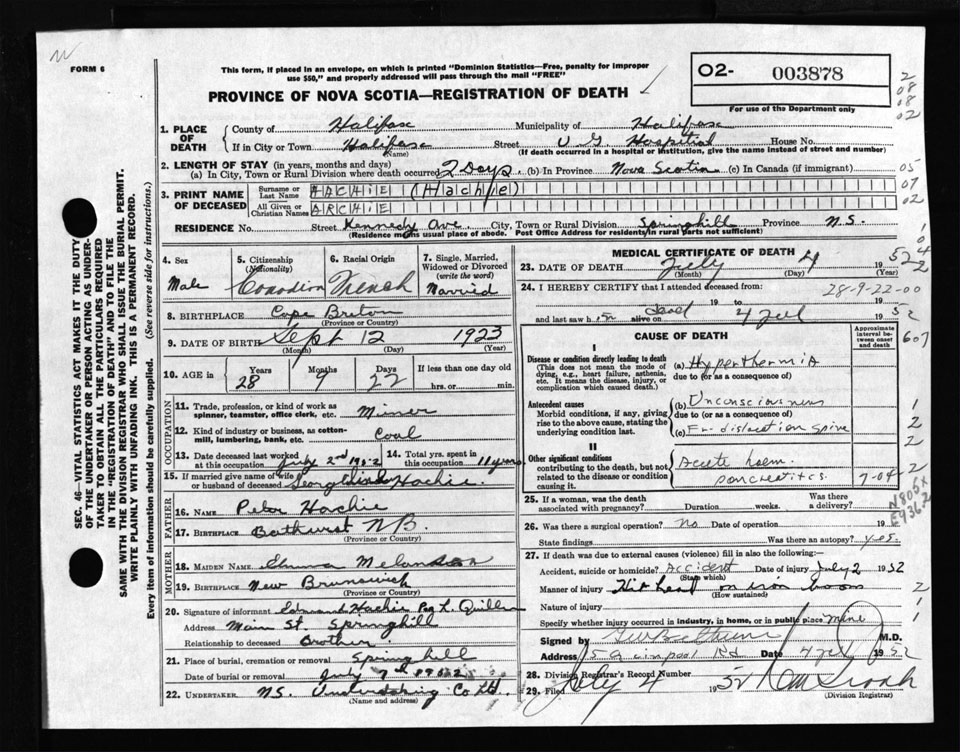 FORM 6
This form, if placed in an envelope, on which is printed "Dominion Statistics—Free, penalty for improper
use $50," and properly addressed will pass through the mail "FREE"
PROVINCE OF NOVA SCOTIA—REGISTRATION OF DEATH
O2- 003878
For use of the Department only
2
08
08
02
1. PLACE OF DEATH
County of Halifax Municipality of Halifax
If in City or Town Halifax Street V G Hospital House No.
(Name) (If death occurred in a hospital or institution, give the name instead of street and number)
2. LENGTH OF STAY (in years, months and days)
(a) In City, Town or Rural Division where death occurred 2 Days (b) In Province Nova Scotia (c) In Canada (if immigrant)
05
07
02
3. PRINT NAME OF DECEASED
Surname or Last Name HACHIE (Hachie)
All Given or Christian Names ARCHIE
RESIDENCE No. Street Kennedy Ave. City, Town or Rural Division Springhill Province N.S.
(Residence means usual place of abode. Post Office Address for residents in rural parts not sufficient)
4. Sex
Male
5. Citizenship
(Nationality)
Canadian
6. Racial Origin
French
7. Single, Married, Widowed or Divorced
(write the word)
Married
8. BIRTHPLACE Cape Breton
(Province or Country)
9. DATE OF BIRTH Sept 12 1923
(Month) (Day) (Year)
10. AGE Years Months Days If less than one day old
28 9 22 hrs. or min.
OCCUPATION
11. Trade, profession, or kind of work as
spinner, teamster, office clerk, etc. Miner
12. Kind of industry or business, as cotton-
mill, lumbering, bank, etc. Coal
13. Date deceased last worked
at this occupation July 2nd 1952
14. Total yrs. spent in
this occupation 11 years
15. If married give name of wife
or husband of deceased Hachie
FATHER
16. Name Peter Hachie
17. Birthplace Bathurst N B.
(Province or Country)
MOTHER
18. Maiden Name Melanson
19. Birthplace New Brunswick
(Province or Country)
20. Signature of informant Edmond Hachie
Address Main St. Springhill
Relationship to deceased Brother
21. Place of burial, cremation or removal Springhill
Date of burial or removal July 7th 1952
22. UNDERTAKER N.S. Undertaking Co Ltd.
(Name and address)
MEDICAL CERTIFICATE OF DEATH
23. DATE OF DEATH July 4 1952
(Month) (Day) (Year)
24. I HEREBY CERTIFY that I attended deceased from:
28-9-22-00
19 to 19
and last saw h im alive on dead 4 Jul 1952
CAUSE OF DEATH
Approximate interval between onset and death
607
I
Disease or condition directly leading to death
(This does not mean the mode of
dying, e.g., heart failure, asthenia,
etc. It means the disease, injury, or
complication which caused death.)
(a) Hyperthermia
due to (or as a consequence of)
Antecedent causes
Morbid conditions, if any, giving
rise to the above cause, stating the
underlying condition last.
(b) Unconsciousness
due to (or as a consequence of)
(c) Fr-dislocation spine
II
Other significant conditions
contributing to the death, but not
related to the disease or condition
causing it.
Acute haem.
pancreatitis
7-04
25. If a woman, was the death
associated with pregnancy? Duration weeks. Was there a delivery?
26. Was there a surgical operation? No Date of operation 19
State findings Was there an autopsy? yes.
27. If death was due to external causes (violence) fill in also the following:—
Accident, suicide or homicide? Accident Date of injury July 2 1952
(State which)
Manner of injury Hit head on iron boom
(How sustained)
Nature of injury
Specify whether injury occurred in industry, in home, or in public place mine
Signed by M.D.
Address Rd Date 4 Jul 1952
28. Division Registrar's Record Number
29. Filed July 4 1952
(Division Registrar)
SEC. 46—VITAL STATISTICS ACT MAKES IT THE DUTY
OF THE UNDERTAKER OR PERSON ACTING AS UNDER-
TAKER TO OBTAIN ALL THE PARTICULARS REQUIRED
IN THE "REGISTRATION OF DEATH" AND TO FILE THE
SAME WITH THE DIVISION REGISTRAR WHO SHALL ISSUE THE BURIAL PERMIT.
WRITE PLAINLY WITH UNFADING INK. THIS IS A PERMANENT RECORD.
Every item of information should be carefully supplied. (See reverse side for instructions.)